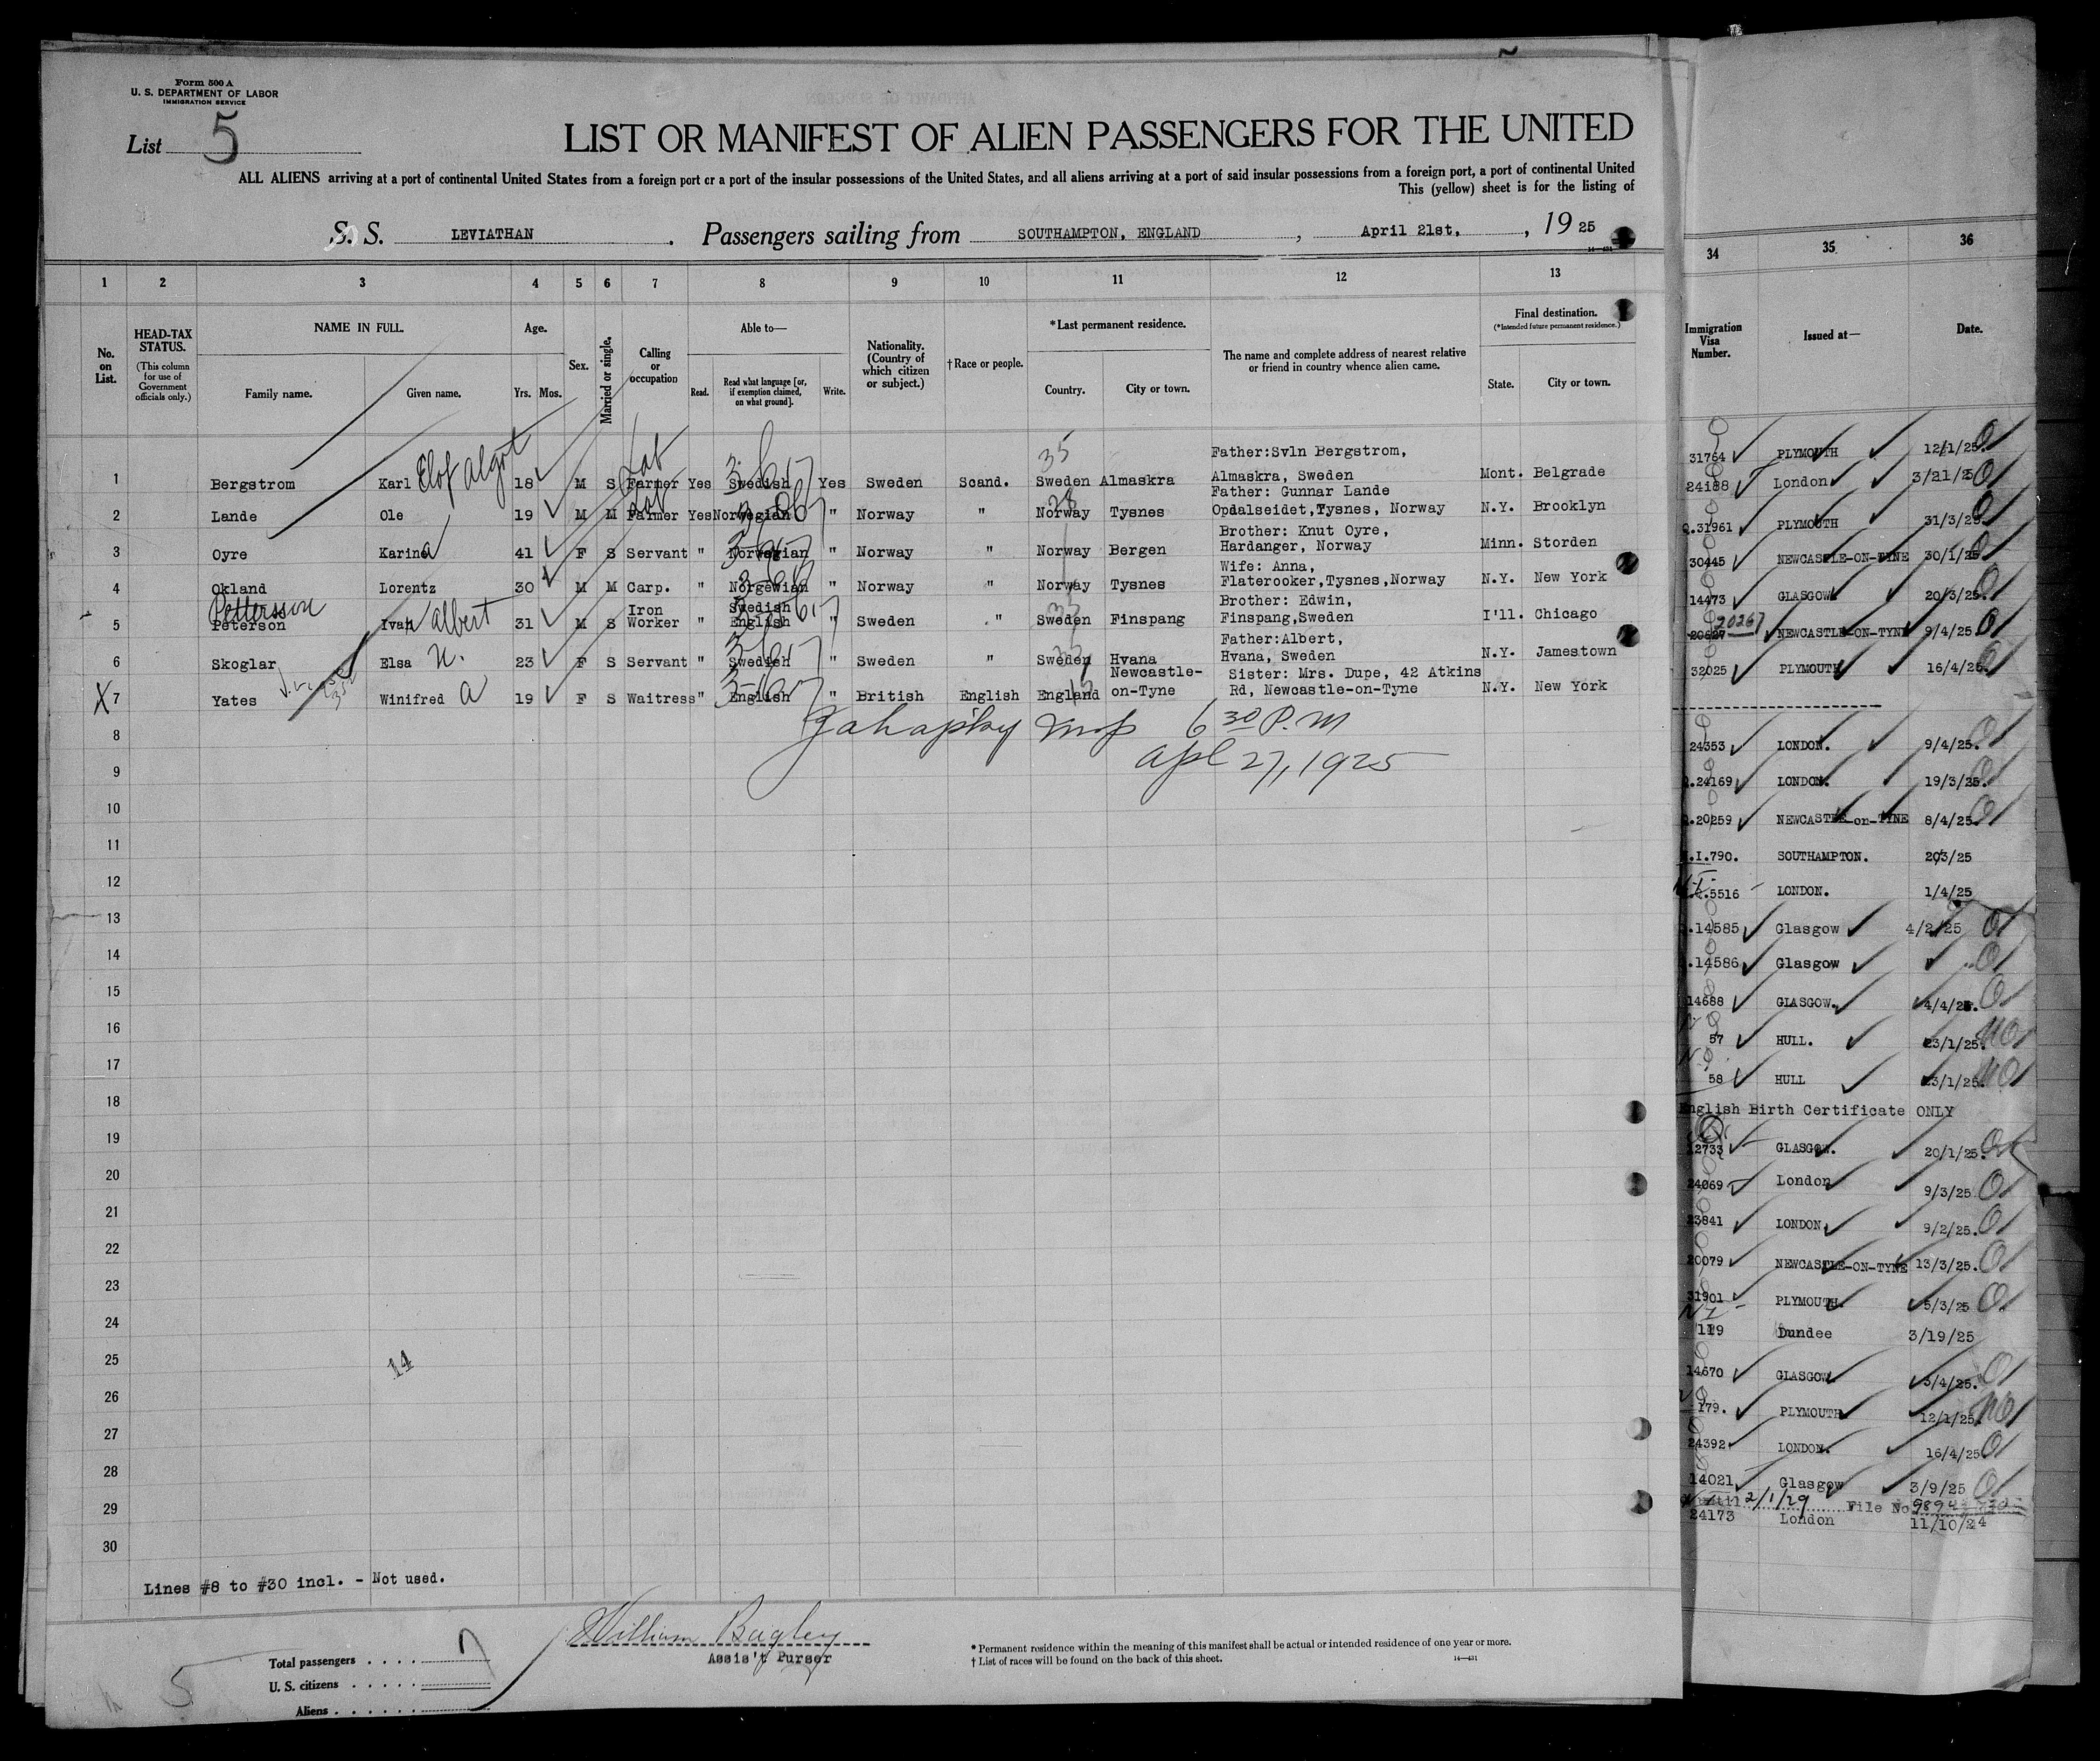 Form 500 A
U. S. DEPARTMENT OF LABOR
IMMIGRATION SERVICE
List 5
LIST OR MANIFEST OF ALIEN PASSENGERS FOR THE UNITED
ALL ALIENS arriving at a port of continental United States from a foreign port or a port of the insular possessions of the United States, and all aliens arriving at a port of said insular possessions from a foreign port, a port of continental United
This (yellow) sheet is for the listing of
S. S. LEVIATHAN . Passengers sailing from SOUTHAMPTON, ENGLAND , April 21st, , 19 25
1 2 3 4 5 6 7 8 9 10 11 12 13
No. on List.
HEAD-TAX STATUS.
(This column for use of Government officials only.)
NAME IN FULL.
Family name. Given name.
Age.
Yrs. Mos.
Sex.
Married or single.
Calling or occupation
Able to—
Read. Read what language [or, if exemption claimed, on what ground]. Write.
Nationality. (Country of which citizen or subject.)
†Race or people.
*Last permanent residence.
Country. City or town.
The name and complete address of nearest relative or friend in country whence alien came.
Final destination.
(*Intended future permanent residence.)
State. City or town.
Father:Svln Bergstrom,
1 Bergstrom Karl Elof Algot 18 M S Farmer Yes Swedish Yes Sweden Scand. Sweden Almaskra Almaskra, Sweden Mont. Belgrade
Father: Gunnar Lande
2 Lande Ole 19 M M Farmer Yes Norwegian " Norway " Norway Tysnes Opdalseidet,Tysnes, Norway N.Y. Brooklyn
Brother: Knut Oyre,
3 Oyre Karina 41 F S Servant " Norwegian " Norway " Norway Bergen Hardanger, Norway Minn. Storden
Wife: Anna,
4 Okland Lorentz 30 M M Carp. " Norgewian " Norway " Norway Tysnes Flaterooker,Tysnes,Norway N.Y. New York
Pettersson Iron Swedish Brother: Edwin,
5 Peterson Ivan Albert 31 M S Worker " English " Sweden " Sweden Finspang Finspang,Sweden I'll. Chicago
Father:Albert,
6 Skoglar Elsa N. 23 F S Servant " Swedish " Sweden " Sweden Hvana Hvana, Sweden N.Y. Jamestown
Newcastle- Sister: Mrs. Dupe, 42 Atkins
X 7 Yates Winifred A 19 F S Waitress " English " British English England on-Tyne Rd, Newcastle-on-Tyne N.Y. New York
6 30 P.M
8
Apl 27, 1925
9
10
11
12
13
14
15
16
17
18
19
20
21
22
23
24
25
14
26
27
28
29
30
Lines #8 to #30 incl. - Not used.
William Bagley
Assis't Purser
Total passengers . . . . 7
U. S. citizens . . . . .
Aliens . . . . . .
5
* Permanent residence within the meaning of this manifest shall be actual or intended residence of one year or more.
† List of races will be found on the back of this sheet.
14—431
34 35 36
Immigration Visa Number. Issued at— Date.
31764 PLYMOUTH 12/1/25.
24188 London 3/21/25
Q.31961 PLYMOUTH 31/3/25
30445 NEWCASTLE-ON-TYNE 30/1/25
14473 GLASGOW 20/3/25.
20267 NEWCASTLE-ON-TYNE 9/4/25
32025 PLYMOUTH 16/4/25
24353 LONDON. 9/4/25.
Q.24169 LONDON. 19/3/25.
Q.20259 NEWCASTLE-on-TYNE 8/4/25.
.I.790. SOUTHAMPTON. 20/3/25
5516 LONDON. 1/4/25
.14585 Glasgow 4/2/25
.14586 Glasgow "
14688 GLASGOW. 4/4/25.
57 HULL. 23/1/25.
58 HULL 23/1/25.
English Birth Certificate ONLY
12733 GLASGOW. 20/1/25.
24069 London 9/3/25
23841 LONDON 9/2/25.
20079 NEWCASTLE-ON-TYNE 13/3/25.
31901 PLYMOUTH. 5/3/25
119 Dundee 3/19/25
14670 GLASGOW 3/4/25.
179. PLYMOUTH 12/1/25
24392 LONDON. 16/4/25
14021 Glasgow 3/9/25
until 2/1/29 File No.
24173 London 11/10/24